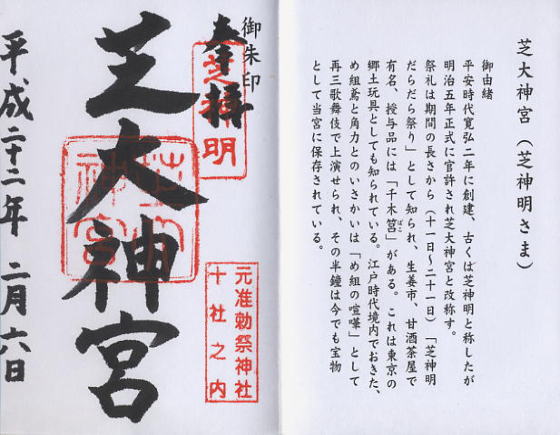 芝大神宮(芝神明さま)
御由緒
平安時代寛弘二年に創建、古くは芝神明と称したが
明治五年正式に官許され芝大神宮と改称す。
祭礼は期間の長さから(十一日~二十一日)「芝神明
だらだら祭り」として知られ、生姜市、甘酒茶屋で
有名、授与品には「千木筥」がある。これは東京の
ばこ
郷土玩具としても知られている。江戸時代境内でおきた、
め組鳶と角力とのいさかいは「め組の喧嘩」として
再三歌舞伎で上演せられ、その半鐘は今でも宝物
として当宮に保存されている。
御朱印
奉拝
芝神明
元准勅祭神社
十社之内
芝大神宮
平成二十二年 二月六日